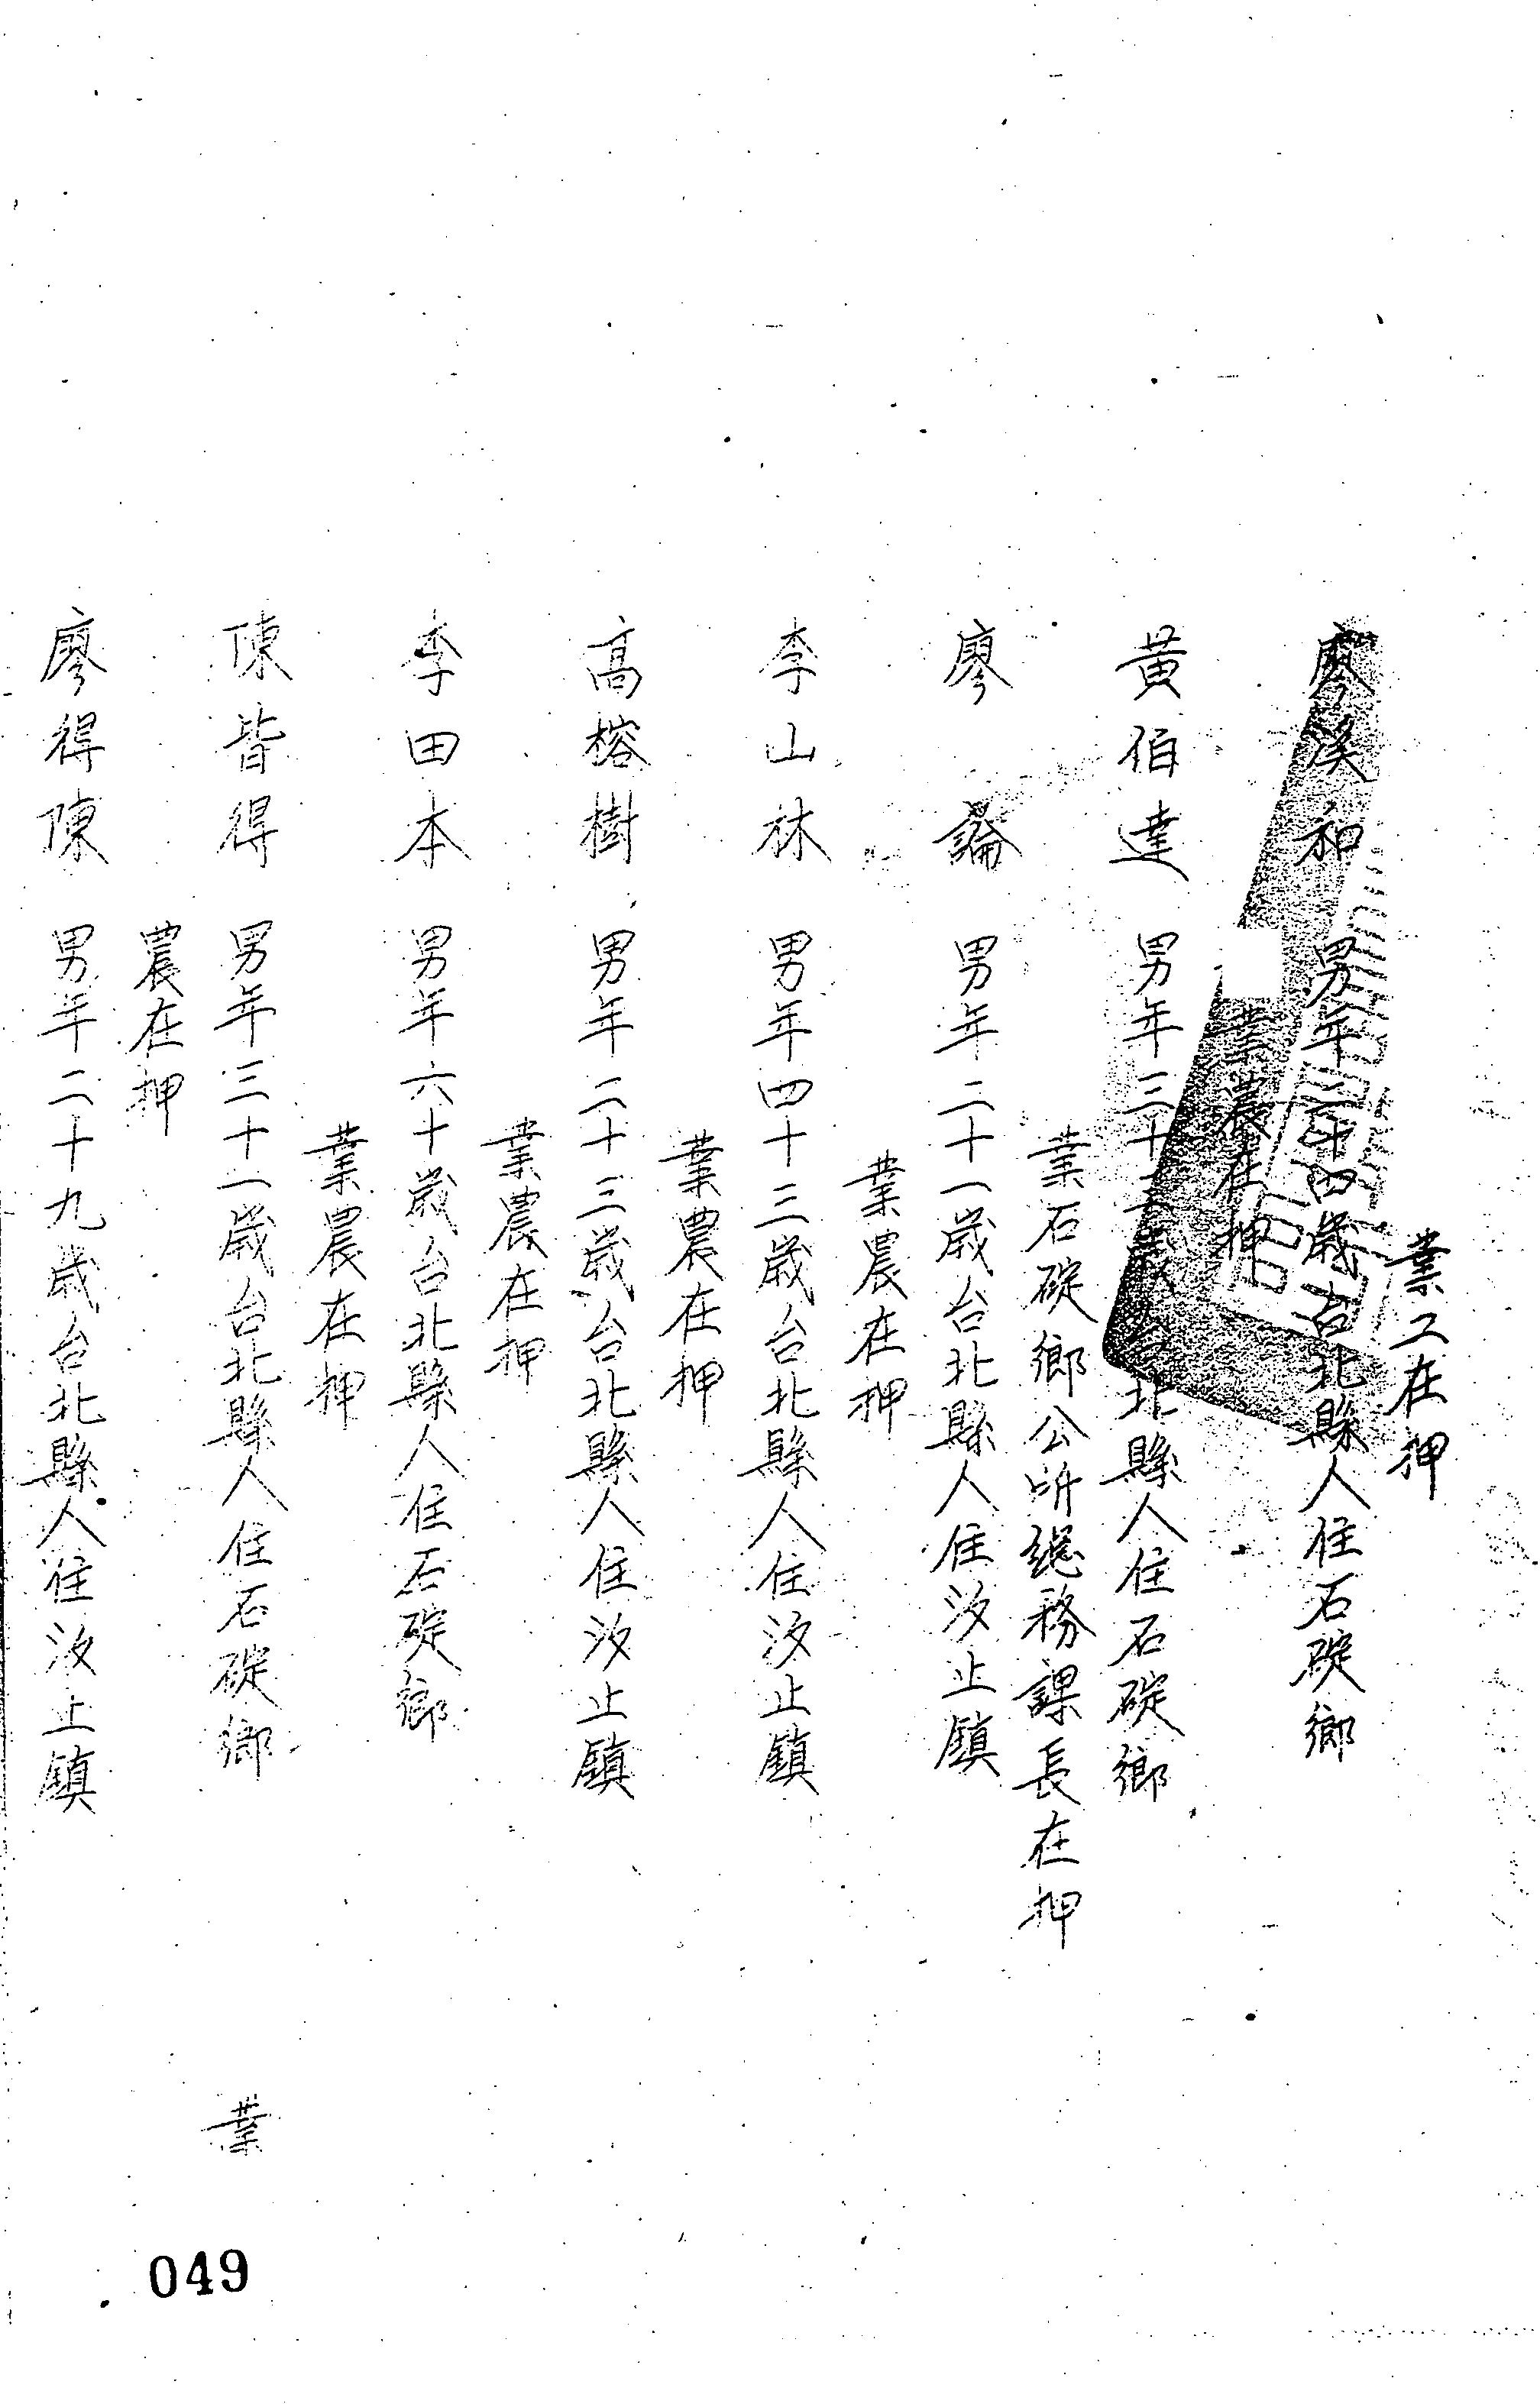 業工在押
廖溪和 男年二十四歲台北縣人住石碇鄉
業農在押
黃伯達 男年三十 歲台北縣人住石碇鄉
業石碇鄉公所總務課長在押
廖 論 男年二十一歲台北縣人住汐止鎮
業農在押
李山林 男年四十三歲台北縣人住汐止鎮
業農在押
高榕樹 男年二十三歲台北縣人住汐止鎮
業農在押
李田本 男年六十歲台北縣人住石碇鄉
業農在押
陳皆得 男年三十一歲台北縣人住石碇鄉 業
農在押
廖得陳 男年二十九歲台北縣人住汐止鎮
049